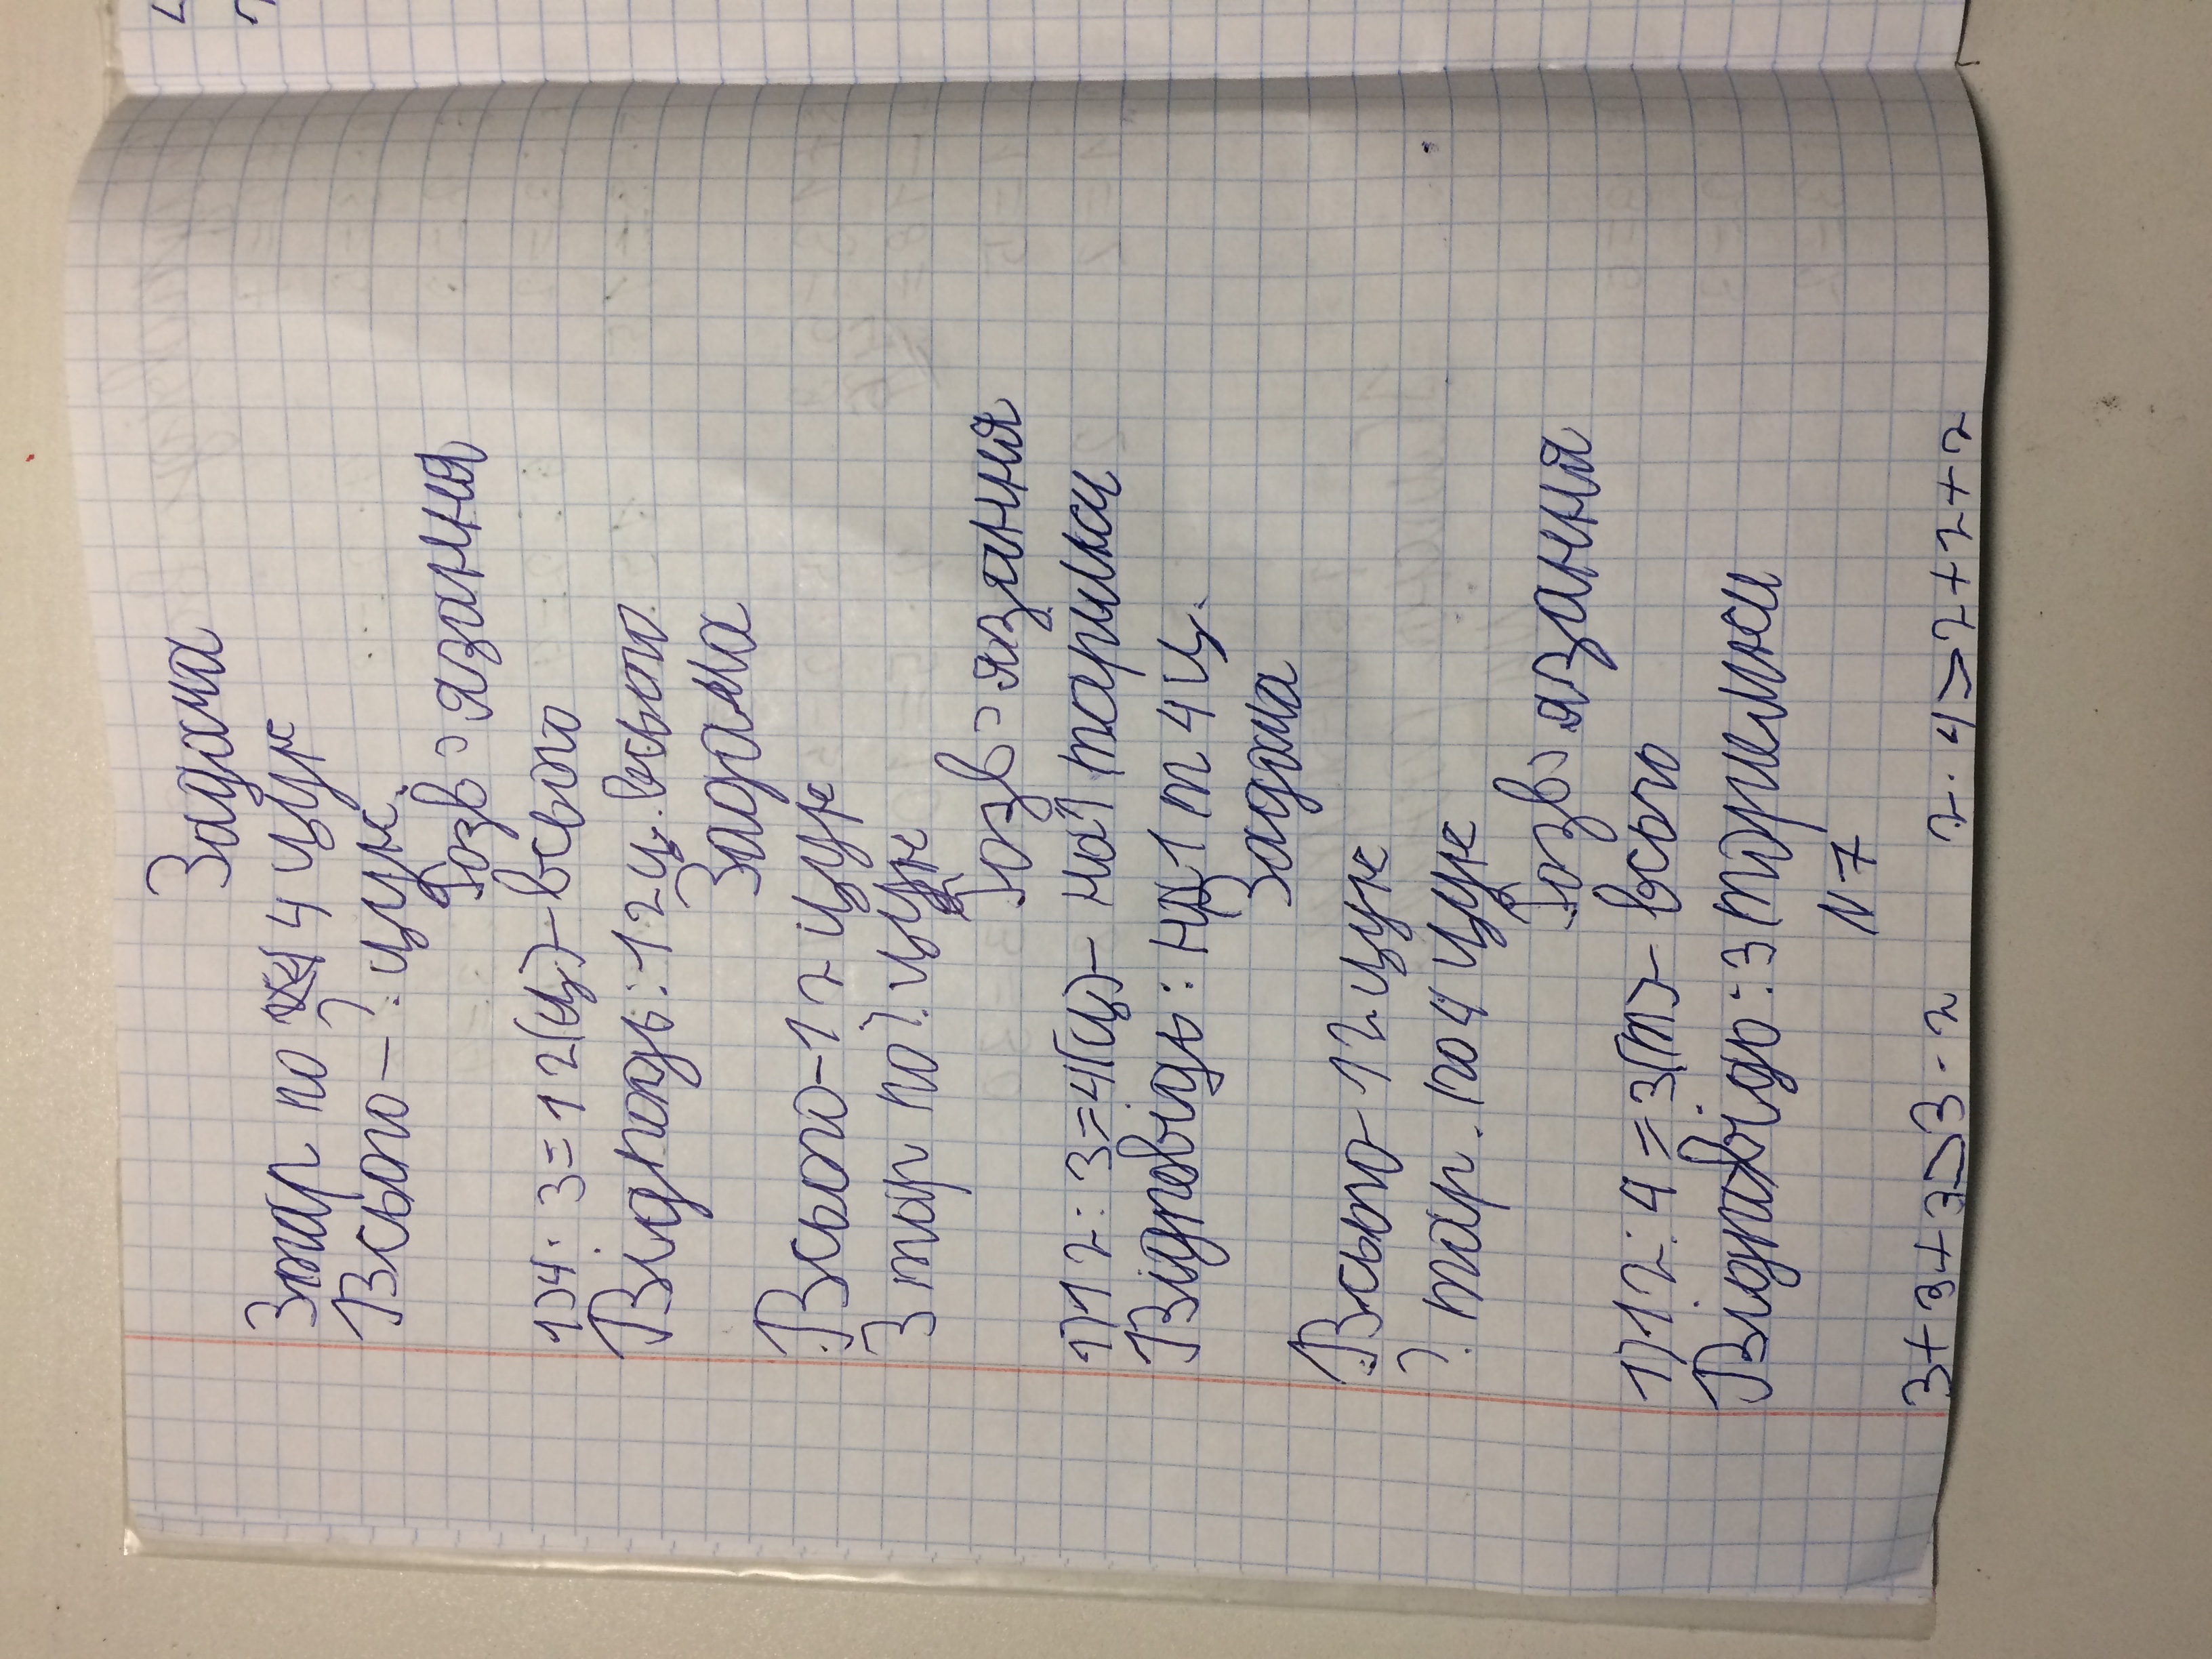 Задача
3 тар по 4 цук
Всього - ? цук.
Розв'язання
1) 4 · 3 = 12 (ц) - всього
Відподь: 12 ц. всього.
Задача
Всього - 12 цук
3 тар по ? цук
Розв'язання
1) 12 : 3 = 4 (ц) - на 1 тарілки
Відповідь: на 1 т 4 ц.
Задача
Всього - 12 цук
? тар. по 4 цук
Розв'язання
1) 12 : 4 = 3 (т) - всього
Відповідь: 3 торілки
N 7
3 + 3 + 3 > 3 · 2 2 · 4 > 2 + 2 + 2